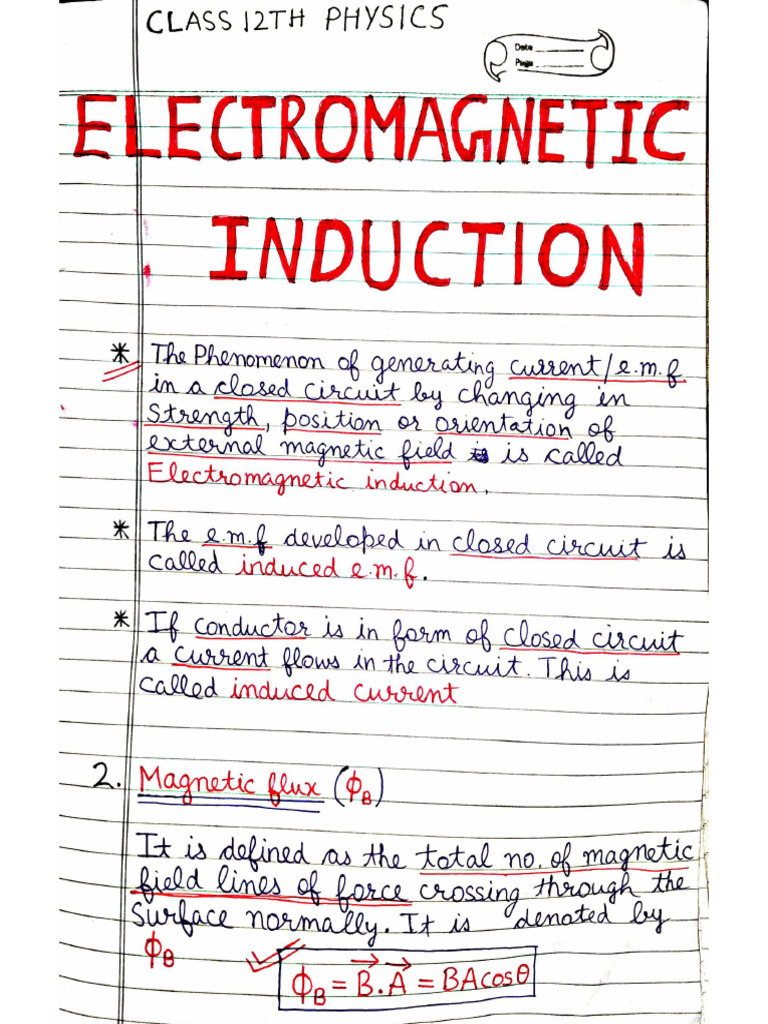 CLASS 12TH PHYSICS
Date
Page
ELECTROMAGNETIC
INDUCTION
* The Phenomenon of generating current/e.m.f
in a closed circuit by changing in
Strength, position or orientation of
external magnetic field is called
Electromagnetic induction.
* The e.m.f developed in closed circuit is
called induced e.m.f.
* If conductor is in form of closed circuit
a current flows in the circuit. This is
called induced current
2. Magnetic flux (ϕB)
It is defined as the total no. of magnetic
field lines of force crossing through the
Surface normally. It is denoted by
ϕB
ϕB = B⃗.A⃗ = BAcosθ